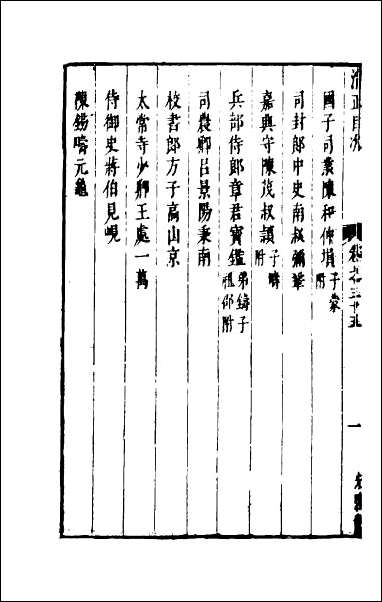 目次 卷之三十五 一
國子司業陳和仲塤子蒙附
司封郎中史南叔彌鞏
嘉興守陳茂叔穎子疇附
兵部侍郎章君寶鑑弟鑄子祖邵附
司農卿呂景陽秉南
校書郎方子高山京
太常寺少卿王處一萬
侍御史蔣伯見峴
陳錫元龜